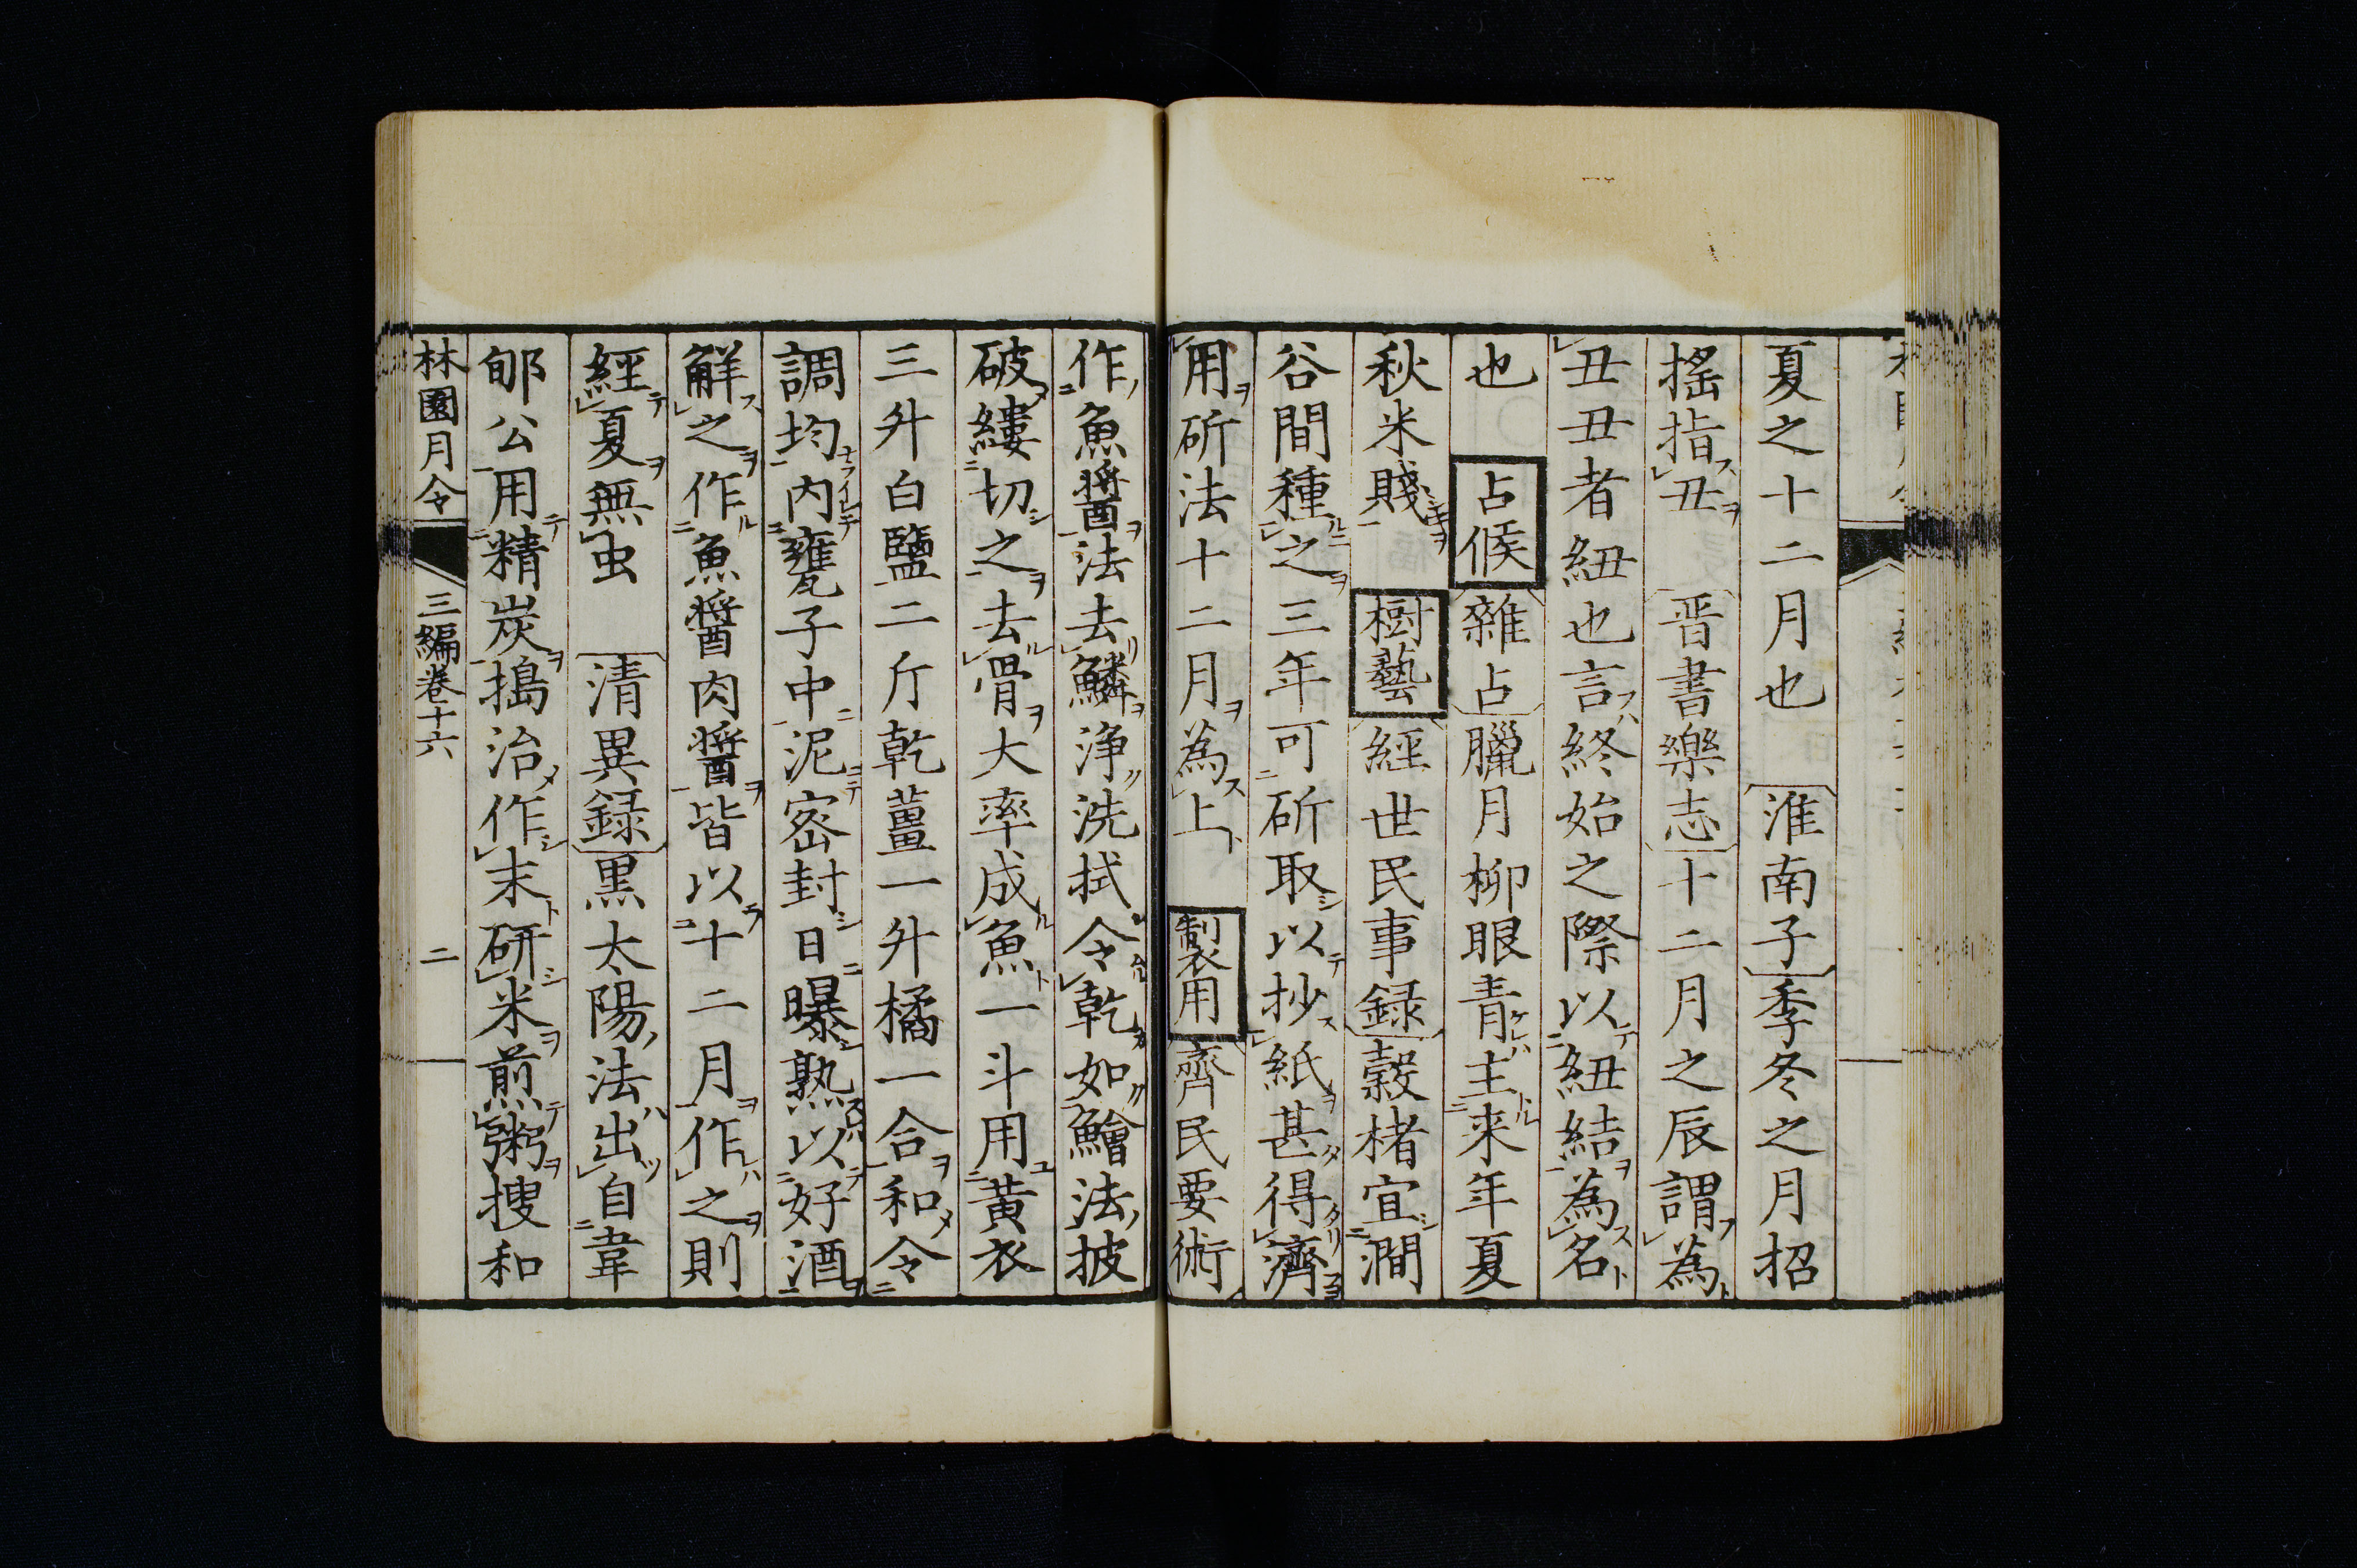 夏之十二月也　淮南子季冬之月招
搖指丑　晋書樂志十二月之辰謂為
丑丑者紐也言終始之際以紐結為名
也　占候　雜占臘月柳眼青主来年夏
秋米賤　樹藝　經世民事録穀楮宜澗
谷間種之三年可斫取以抄紙甚得濟
用斫法十二月為上　製用　齊民要術
作魚醬法去鱗浄洗拭令乾如鱠法披
破縷切之去骨大率成魚一斗用黄衣
三升白鹽二斤乾薑一升橘一合和令
調均内甕子中泥密封日曝熟以好酒
解之作魚醬肉醬皆以十二月作之則
經夏無虫　清異録黒太陽法出自韋
郇公用精炭搗治作末研米煎粥搜和
林園月令　三編卷十六　二